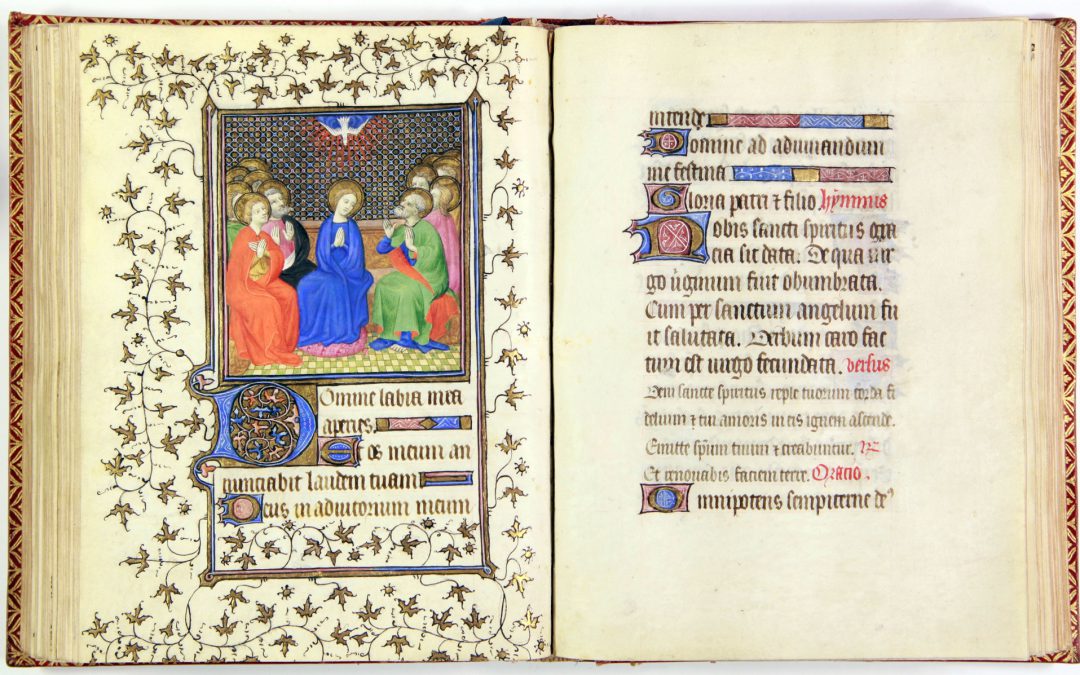 Domine labia mea
aperies.
Et os meum an
nunciabit laudem tuam
Deus in adiutorium meum
intende
Domine ad adiuuandum
me festina
Gloria patri ⁊ filio hỹmnus
Nobis sancti spiritus gra
cia sit data. De qua uir
go ũginum fuit obumbrata.
Cum per sanctum angelum fu
it salutata. Verbum caro fac
tum est uirgo fecundata. versus
Veni sancte spiritus reple tuorum corda fi
delium ⁊ tui amoris in eis ignem ascende.
Emitte sp̃m tuum ⁊ creabuntur. ℟
Et renouabis faciem terre. Oracio.
Omnipotens sempiterne deꝰ